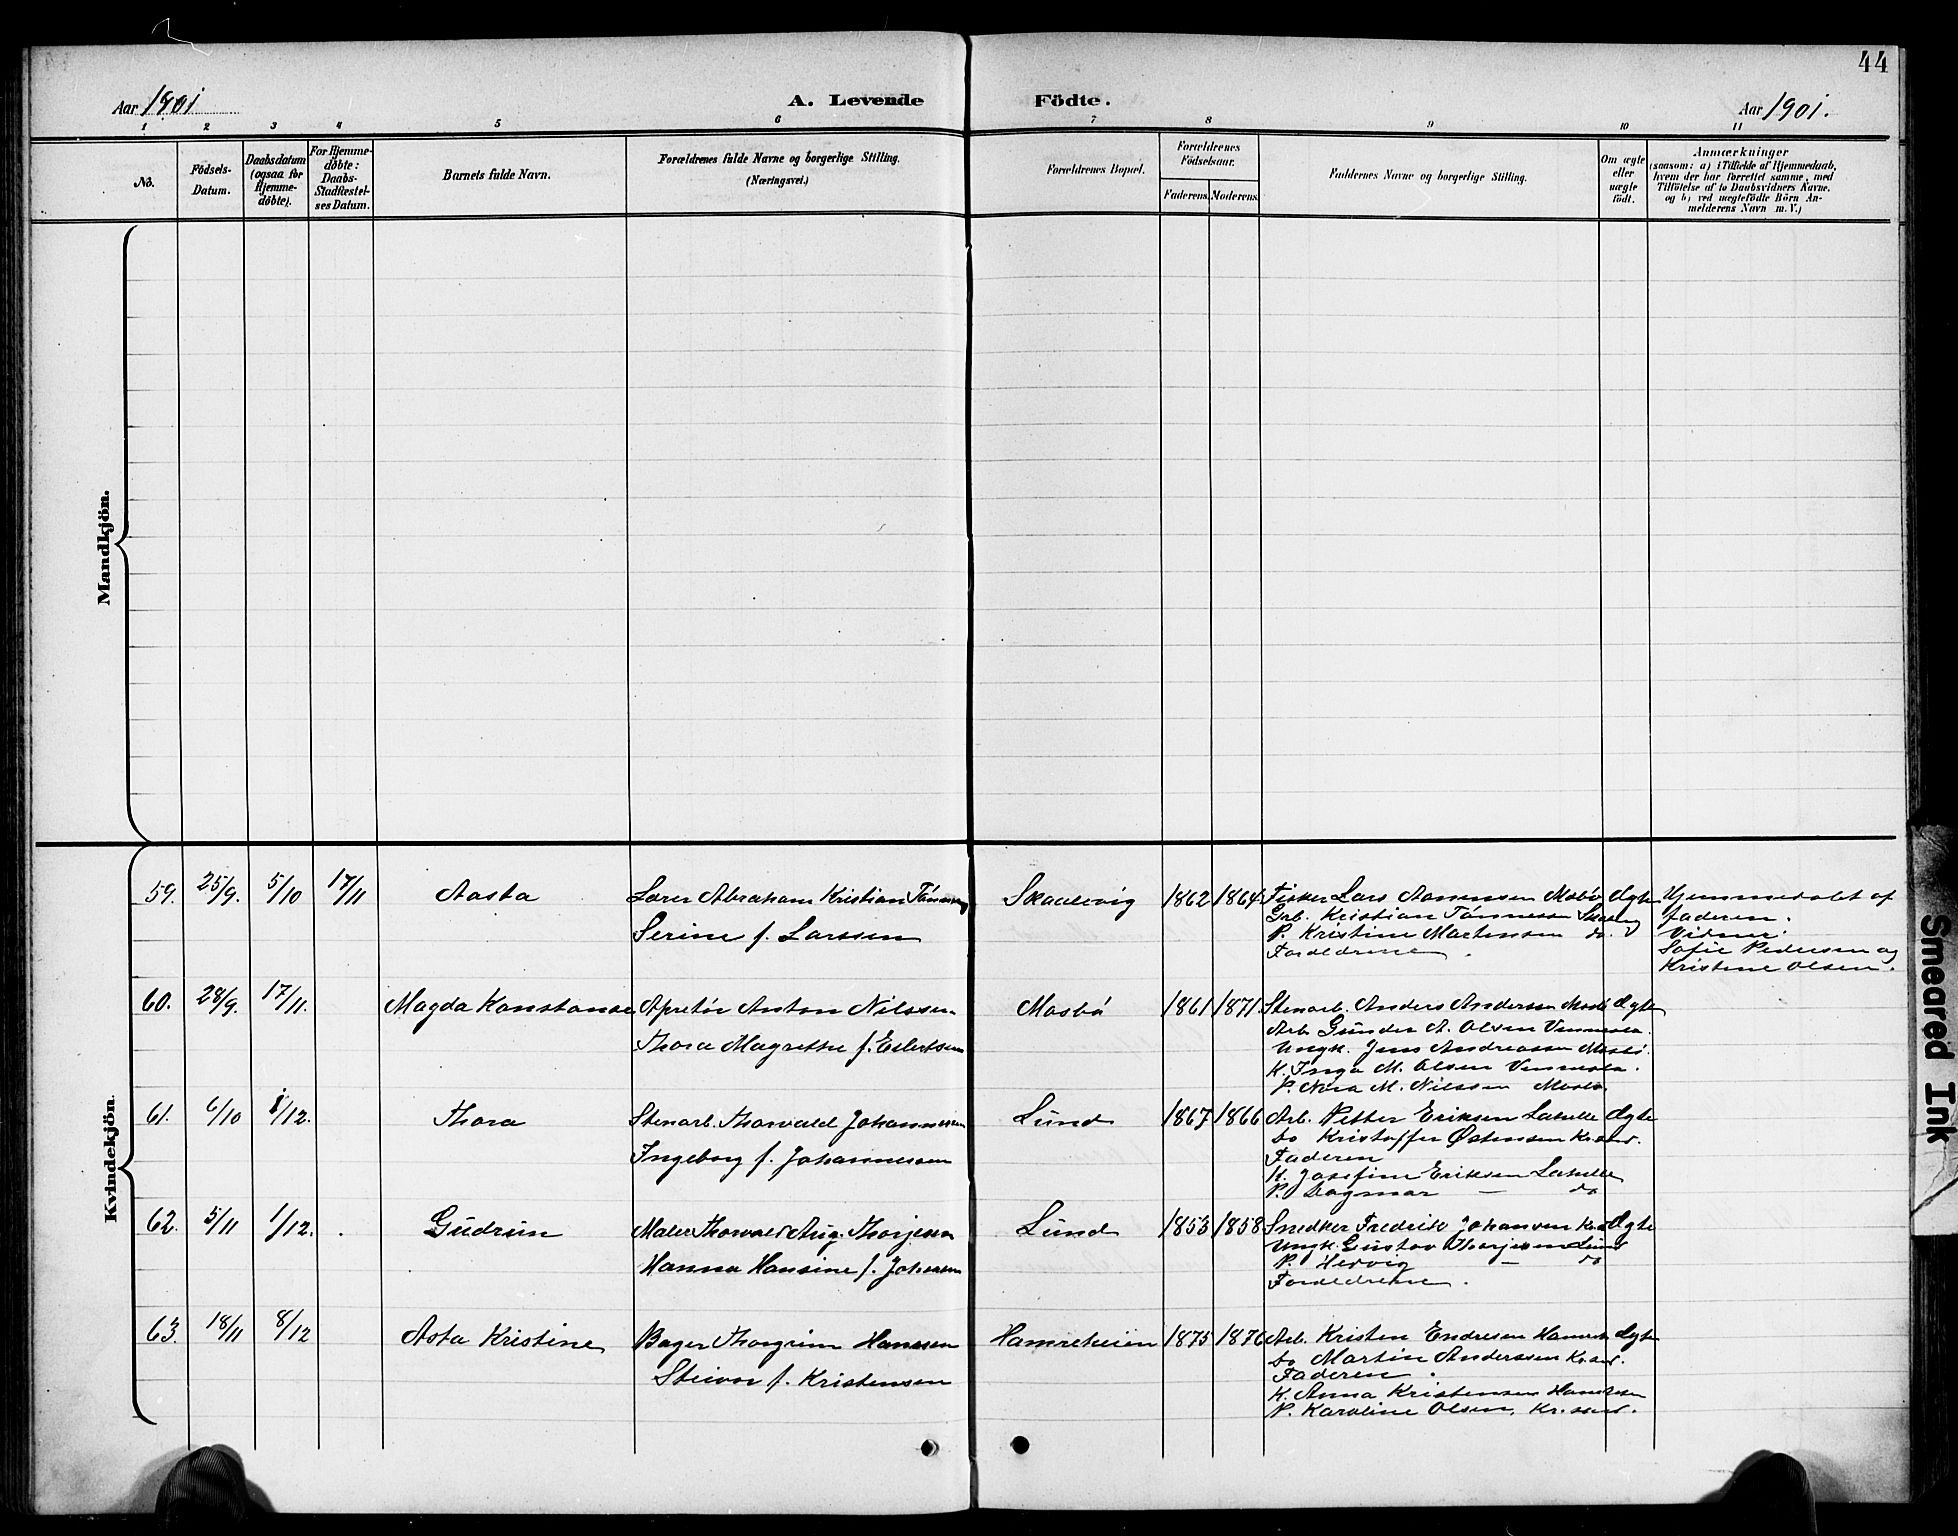 44
Aar 1901
A. Levende Födte.
Aar 1901.
1 2 3 4 5 6 7 8 9 10 11
No.
Födsels-Datum.
Daabsdatum (ogsaa for Hjemme-döbte).
For Hjemme-döbte: Daabs-Stadfæstel-ses Datum.
Barnets fulde Navn.
Forældrenes fulde Navne og borgerlige Stilling. (Næringsvei.)
Forældrenes Bopæl.
Forældrenes Födselsaar.
Faderens. Moderens.
Faddernes Navne og borgerlige Stilling.
Om ægte eller uægte födt.
Anmærkninger
(saasom: a) i Tilfælde af Hjemmedaab,
hvem der har forrettet samme, med
Tilföielse af to Daabsvidners Navne.
og b) ved uægtefödte Börn An-
melderens Navn m. V.)
Mandkjön.
Kvindekjön.
59. 25/9. 5/10 17/11 Aasta
Lærer Abraham Kristian Tönnessen
Serine f. Larssen
Skaalevig 1862 1864
Fisker Lars Aanensen Mosbö
Grb. Kristian Tönnessen
P. Kristine Martensen do.
Forældrene.
Ægte
Hjemmedøbt af
faderen.
Vidner:
Sofie Pedersen og
Kristine Olsen.
60. 28/9. 17/11. Magda Konstanse
Apretör Anton Nilssen
Thora Magrethe f. Eilertsen
Mosbö 1861 1871.
Stenarb. Anders Anderssen Mosbö
Arb. Gunder A. Olsen Vennesla.
Ungk. Jens Andreassen Mosbö.
K. Inga M. Olsen Vennesla.
P. Nora M. Nilssen Mosbö.
Ægte
61. 6/10 1/12. Thora
Stenarb. Thorvald Johannessen
Ingeborg f. Johannessen
Lund 1867 1866
Arb. Petter Eriksen
do Kristoffer Østensen Kr.sand.
Faderen
K. Josefine Eriksen
P. Dagmar — do
Ægte
62. 5/11 1/12. Gudrun
Maler Thorvald Aug. Thorjesen
Hanna Hansine f. Johansen
Lund 1853 1858
Snedker Fredrik Johansen
Ungk. Gustav Thorjesen Lund
P. Hedvig — do
Forældrene.
Ægte
63. 18/11 8/12 Asta Kristine
Bager Thorgrim Hanssen
f. Kristensen
Hamreheien 1875 1876
Arb. Kristen Endresen
do Martin Anderssen Kr.sand.
Faderen.
K. Anna Kristensen
P. Karoline Olsen, Kr.sand.
Ægte
Smeared Ink